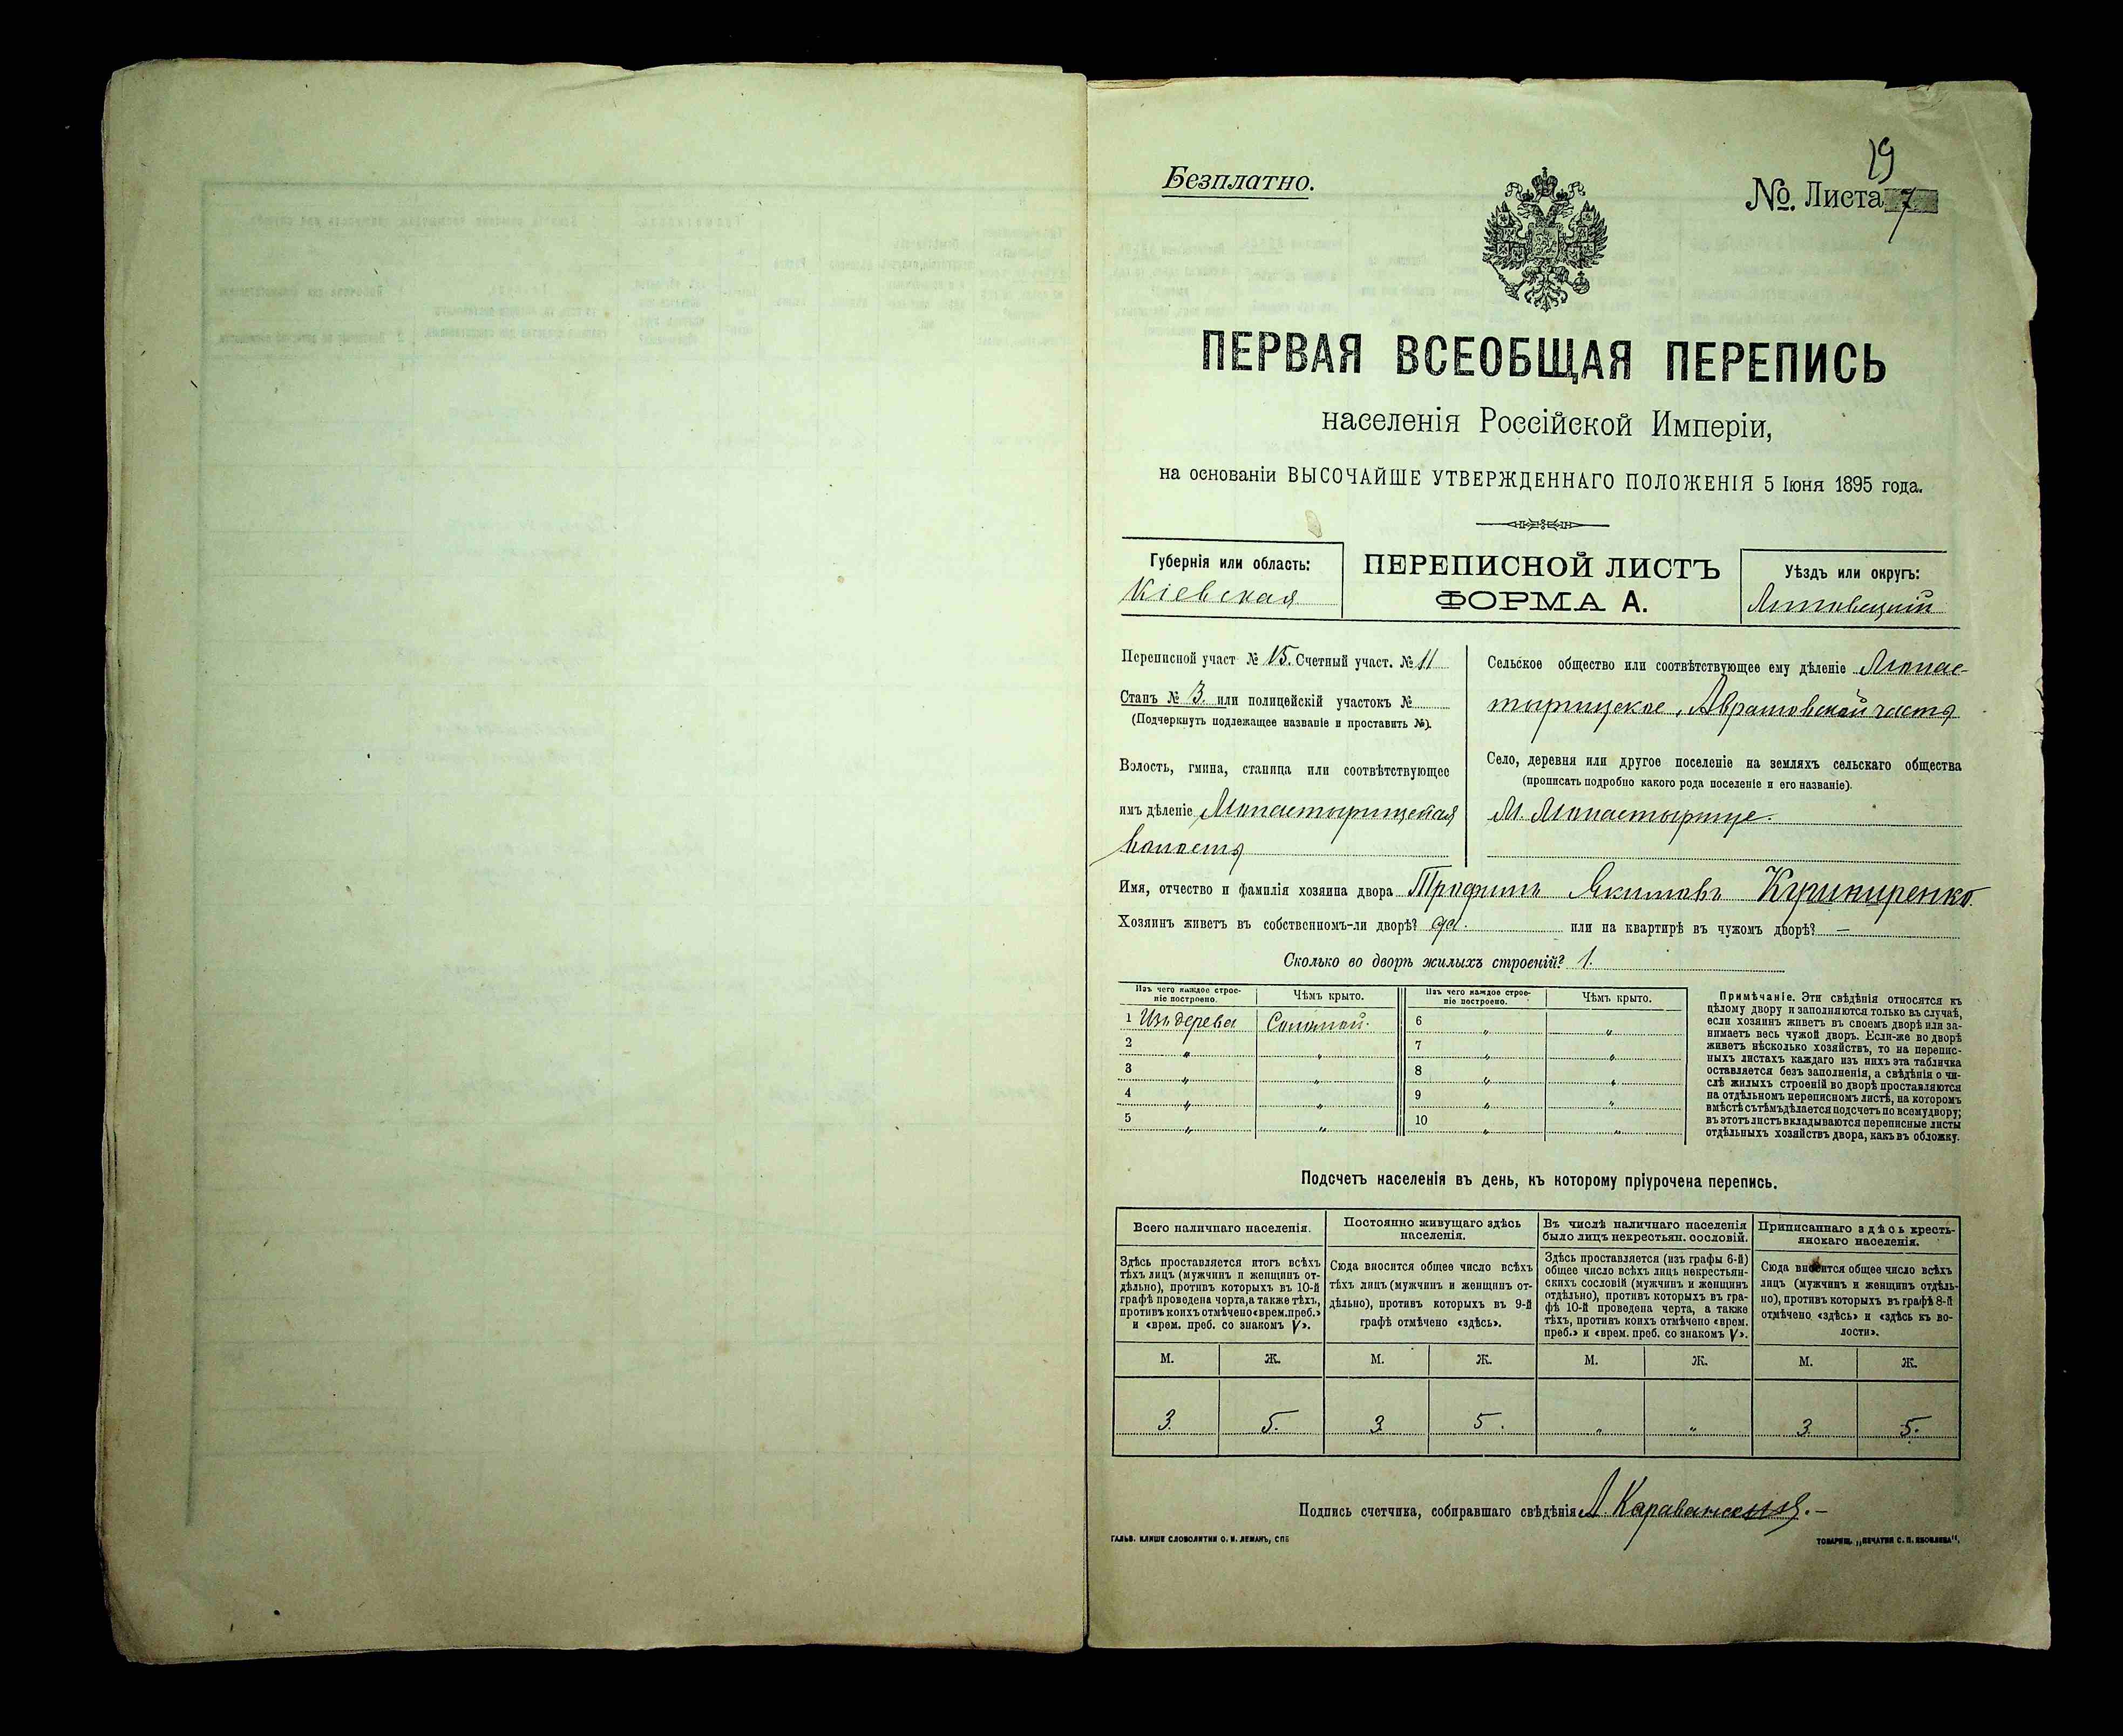 19
Безплатно.
№. Листа 7
ПЕРВАЯ ВСЕОБЩАЯ ПЕРЕПИСЬ
населенія Россійской Имперіи,
на основаніи ВЫСОЧАЙШЕ УТВЕРЖДЕННАГО ПОЛОЖЕНІЯ 5 Іюня 1895 года.
Губернія или область:
Кіевская
ПЕРЕПИСНОЙ ЛИСТЪ
ФОРМА А.
Уѣздъ или округъ:
Липовецкій
Переписной участ № 15. Счетный участ. № 11
Станъ № 3. или полицейскій участокъ №
(Подчеркнуть подлежащее названіе и проставить №).
Волость, гмина, станица или соотвѣтствующее
имъ дѣленіе Монастырищская
волость
Сельское общество или соотвѣтствующее ему дѣленіе Монас-
тырищское, Аврамовской часть
Село, деревня или другое поселеніе на земляхъ сельскаго общества
(прописать подробно какого рода поселеніе и его названіе).
М. Монастырище.
Имя, отчество и фамилія хозяина двора Трофимъ Якимовъ
Хозяинъ живетъ въ собственномъ-ли дворѣ? да. или на квартирѣ въ чужомъ дворѣ? —
Сколько во дворѣ жилыхъ строеній? 1.
Изъ чего каждое строе-
ніе построено.
Чѣмъ крыто.
Изъ чего каждое строе-
ніе построено.
Чѣмъ крыто.
1 Изъ дерева Соломой. 6 " "
2 " " 7 " "
3 " " 8 " "
4 " " 9 " "
5 " " 10 " "
Примѣчаніе. Эти свѣдѣнія относятся къ
цѣлому двору и заполняются только въ случаѣ,
если хозяинъ живетъ въ своемъ дворѣ или за-
нимаетъ весь чужой дворъ. Если-же во дворѣ
живетъ нѣсколько хозяйствъ, то на перепис-
ныхъ листахъ каждаго изъ нихъ эта табличка
оставляется безъ заполненія, а свѣдѣнія о чи-
слѣ жилыхъ строеній во дворѣ проставляются
на отдѣльномъ переписномъ листѣ, на которомъ
вмѣстѣ съ тѣмъ дѣлается подсчетъ по всему двору;
въ этотъ листъ вкладываются переписные листы
отдѣльныхъ хозяйствъ двора, какъ въ обложку.
Подсчетъ населенія въ день, къ которому пріурочена перепись.
Всего наличнаго населенія.
Здѣсь проставляется итогъ всѣхъ
тѣхъ лицъ (мужчинъ и женщинъ от-
дѣльно), противъ которыхъ въ 10-й
графѣ проведена черта, а также тѣхъ,
противъ коихъ отмѣчено «врем. преб.»
и «врем. преб. со знакомъ V».
Постоянно живущаго здѣсь
населенія.
Сюда вносится общее число всѣхъ
тѣхъ лицъ (мужчинъ и женщинъ от-
дѣльно), противъ которыхъ въ 9-й
графѣ отмѣчено «здѣсь».
Въ числѣ наличнаго населенія
было лицъ некрестьян. сословій.
Здѣсь проставляется (изъ графы 6-й)
общее число всѣхъ лицъ некрестьян-
скихъ сословій (мужчинъ и женщинъ
отдѣльно), противъ которыхъ въ гра-
фѣ 10-й проведена черта, а также
тѣхъ, противъ коихъ отмѣчено «врем.
преб.» и «врем. преб. со знакомъ V».
Приписаннаго здѣсь кресть-
янскаго населенія.
Сюда вносится общее число всѣхъ
лицъ (мужчинъ и женщинъ отдѣль-
но), противъ которыхъ въ графѣ 8-й
отмѣчено «здѣсь» и «здѣсь къ во-
лости».
М. Ж. М. Ж. М. Ж. М. Ж.
3. 5. 3. 5. " " 3. 5.
Подпись счетчика, собиравшаго свѣдѣнія
ГАЛЬВ. КЛИШЕ СЛОВОЛИТНИ О. И. ЛЕМАНЪ, СПБ
ТОВАРИЩ. „ПЕЧАТНЯ С. П. ЯКОВЛЕВА".